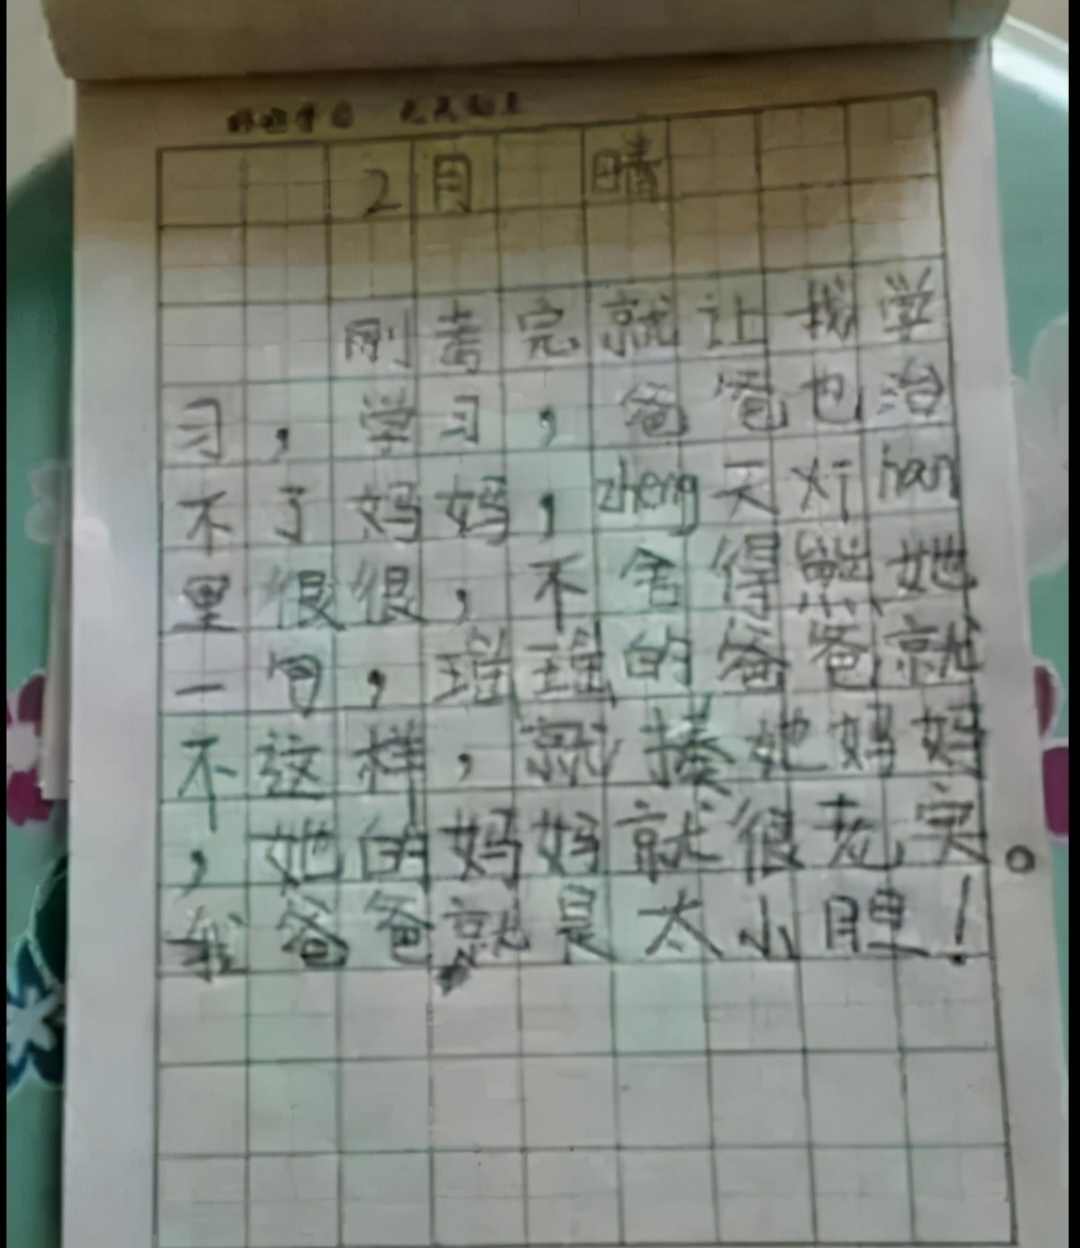 2月 晴
刚考完就让我学
习，学习，爸爸也治
不了妈妈，zheng天对han
里很很，不舍得熊她
一句，瑶瑶的爸爸就
不这样，就揍她妈妈
，她的妈妈就很老实。
我爸爸就是太小胆！